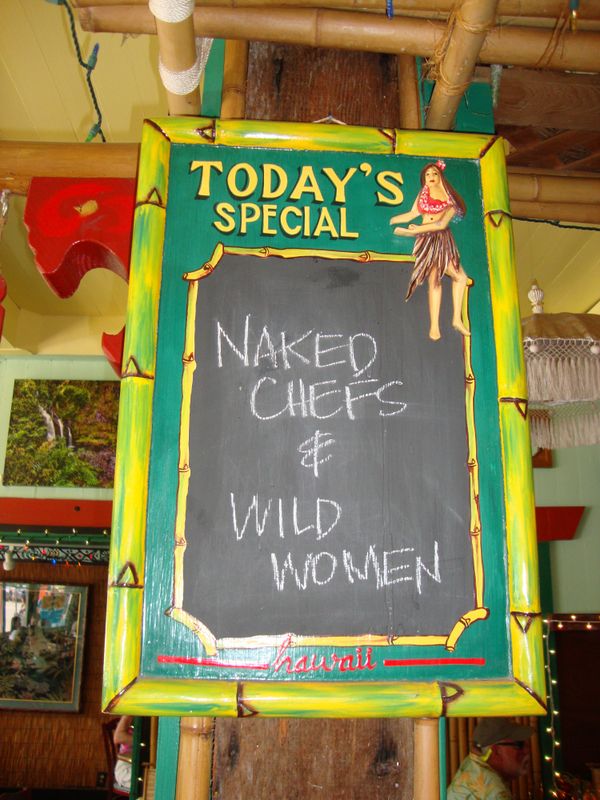 TODAY'S
SPECIAL
NAKED
CHEFS
&
WILD
WOMEN
hawaii